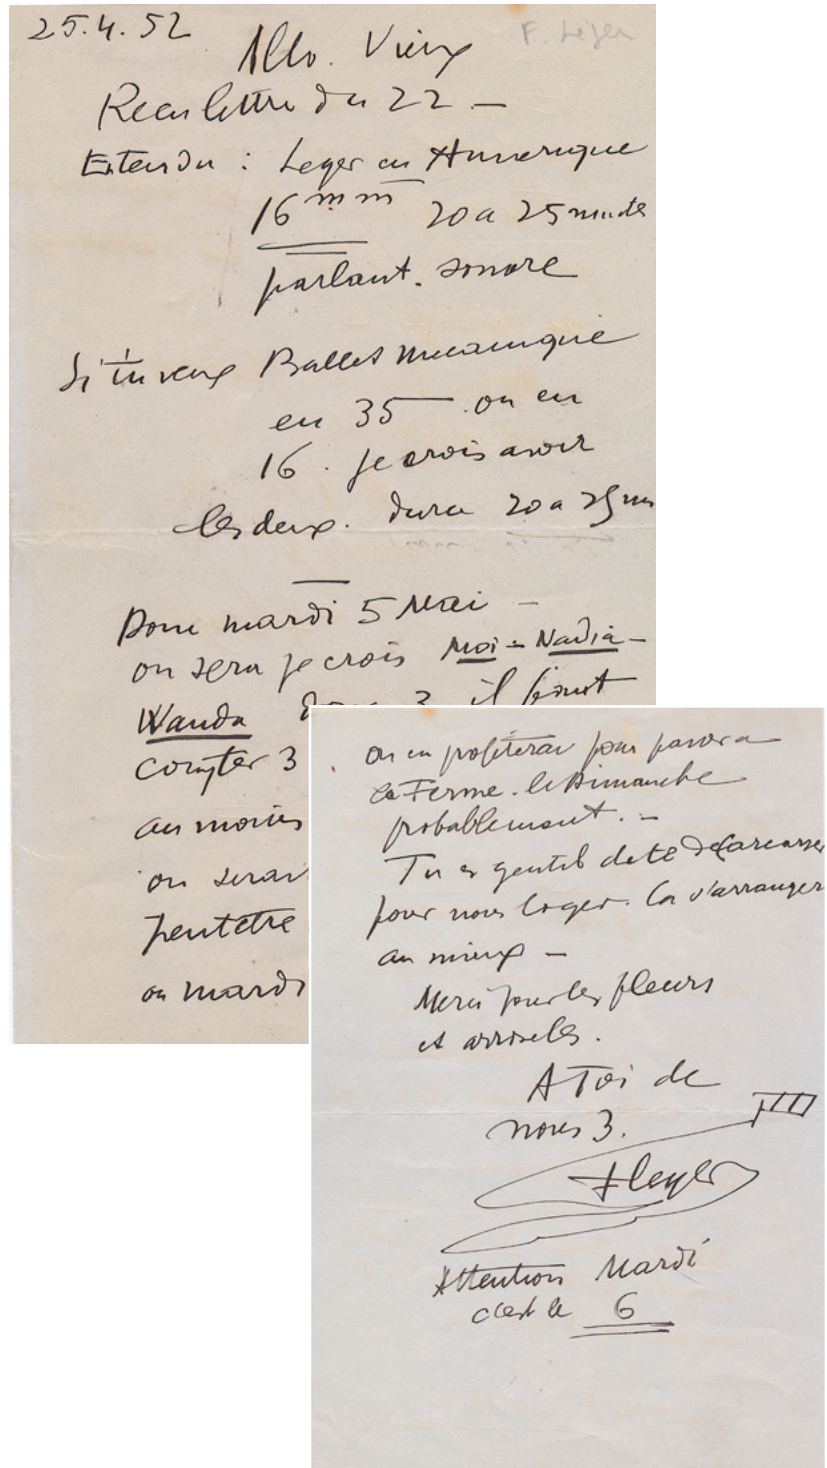 25.4.52
F. Léger
Allo. Vieux
Recu lettre du 22 —
Entendu : Leger en Amerique
16 mm 20 a 25 minutes
parlant. sonore
Si tu veux Ballet mecanique
en 35 — ou en
16. je crois avoir
les deux. dure 20 a 25 mn
Pour mardi 5 Mai —
on sera je crois Moi - Nadia -
Wanda 3 il faut
compter 3
au moins
on serait
peut etre
ou mardi
on en profiterai pour passer a
la Ferme. le Dimanche
probablement. —
Tu es gentil de te decarcasser
pour nous loger. Ca s'arrangera
au mieux —
Merci pour les fleurs
et arrose les.
A Toi de
nous 3.
FLeger
Attention Mardi
c'est le 6